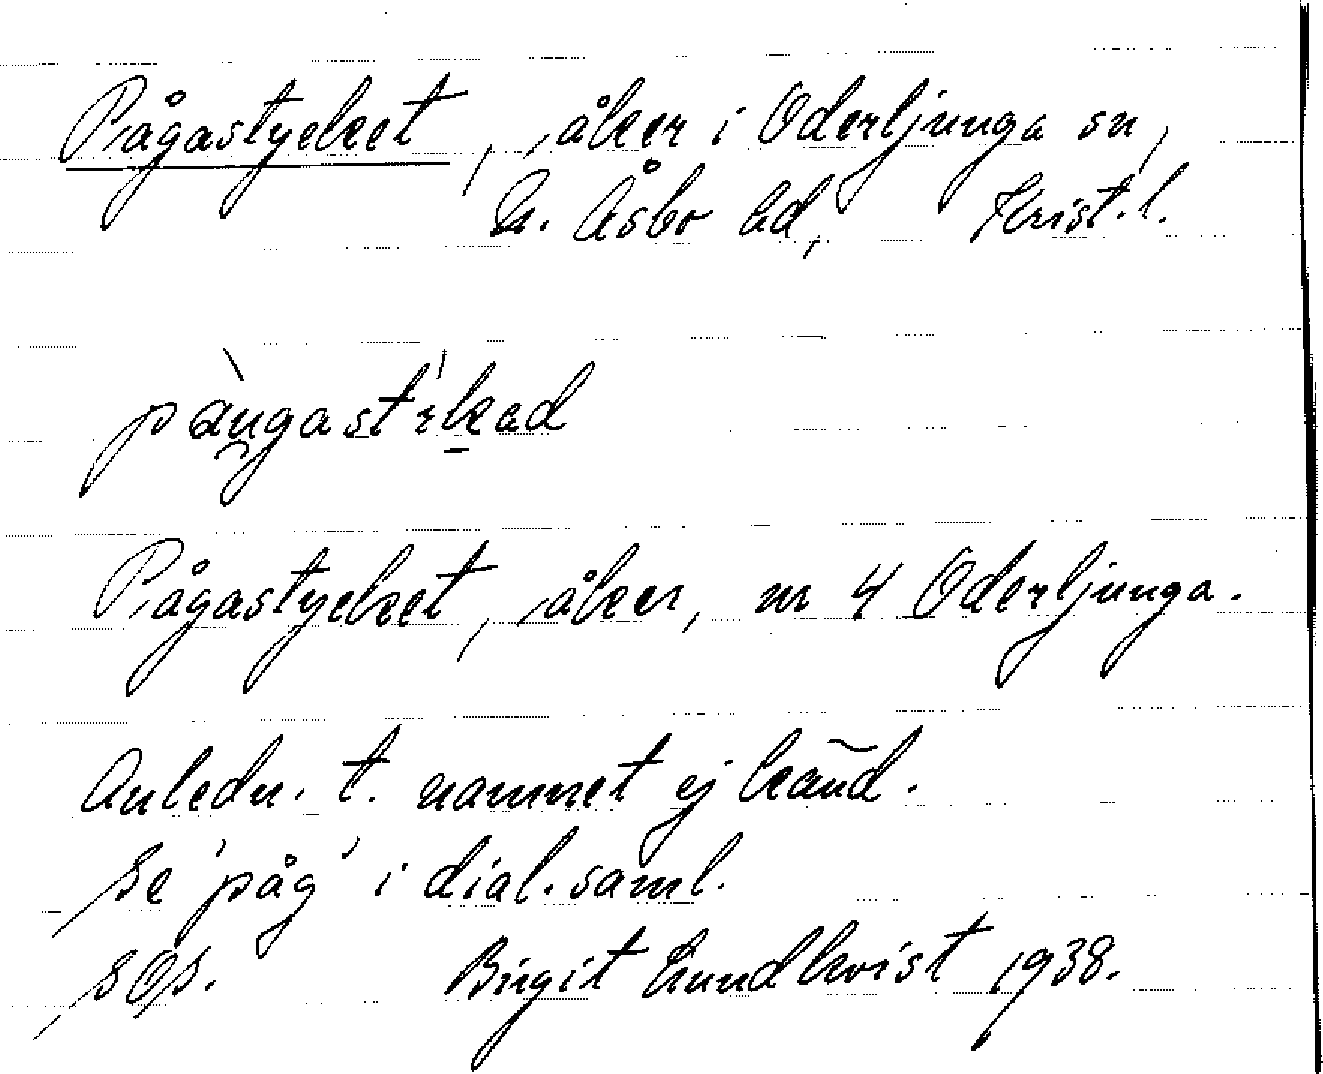 Pågastycket, åker i Oderljunga sn,
N. Åsbo hd, Krist. l.
Pågastycket, åker, nr 4 Oderljunga.
Anledn. t. namnet ej känd.
Se 'påg' i dial. saml.
Birgit Lundkvist 1938.